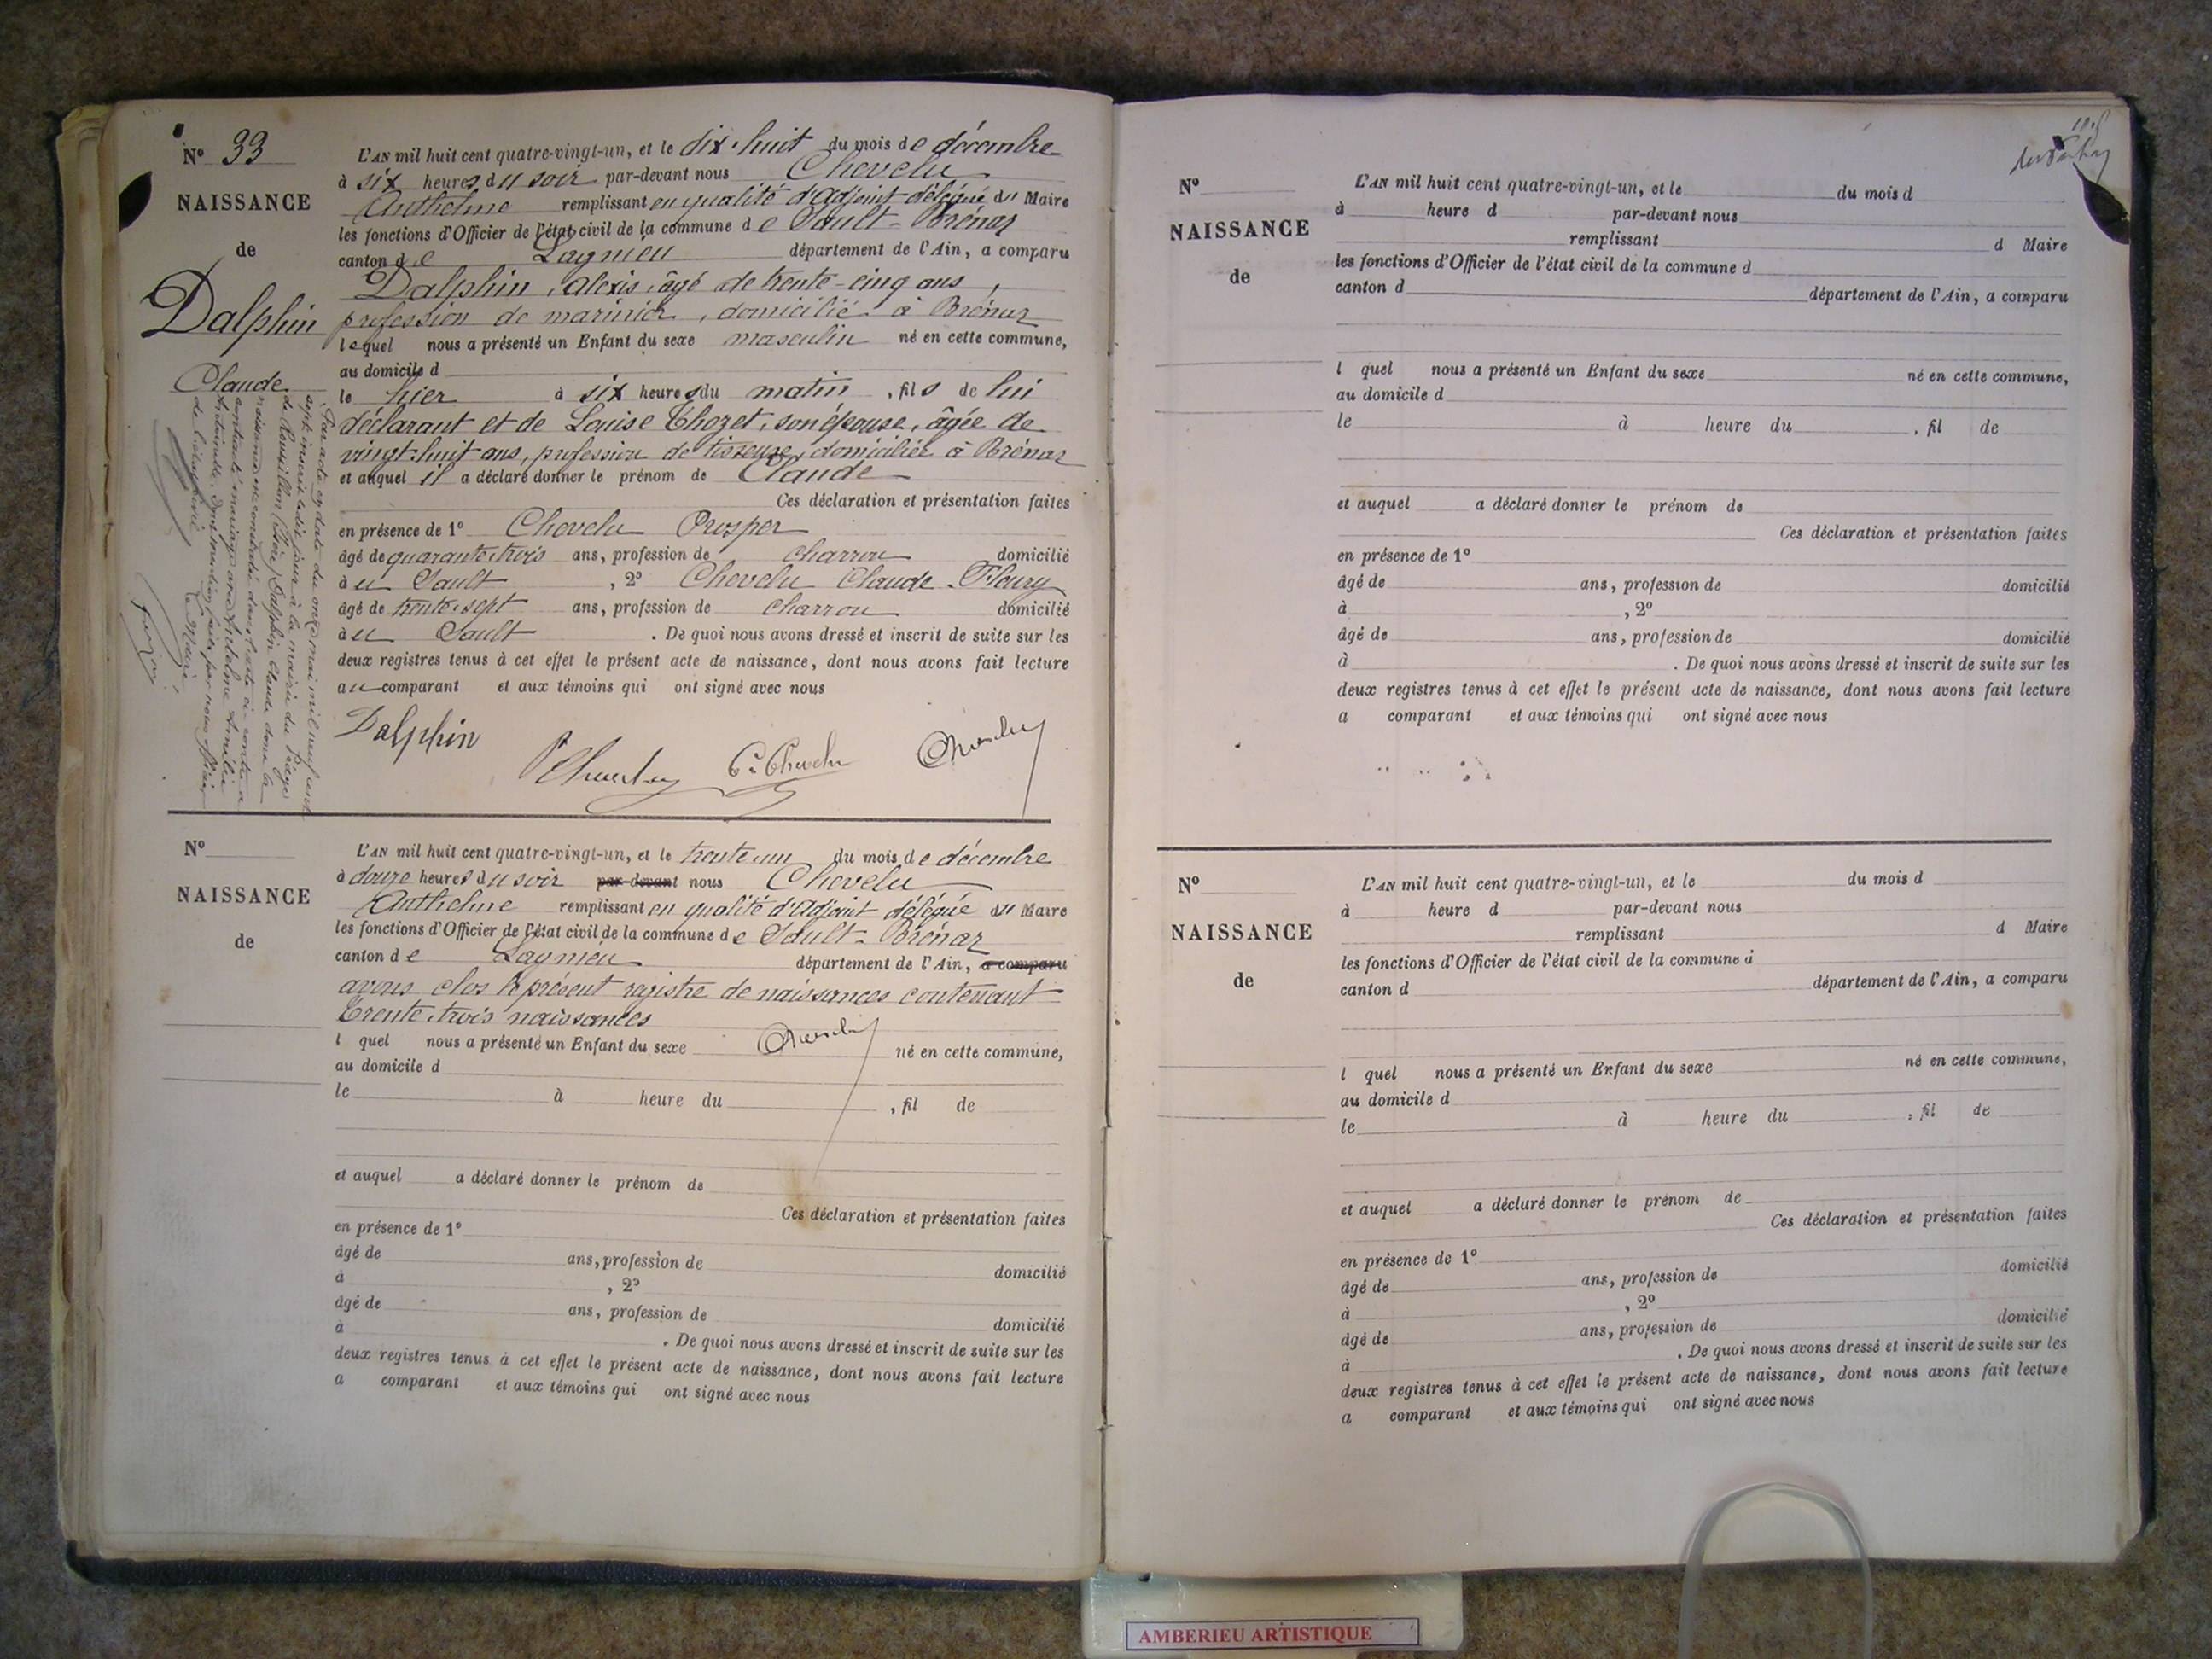 N° 33
NAISSANCE
de
Dalphin
Claude
L'AN mil huit cent quatre-vingt-un, et le dix-huit du mois de décembre
à six heures du soir par-devant nous Chevelu
Anthelme remplissant en qualité d'adjoint délégué du Maire
les fonctions d'Officier de l'état civil de la commune de Sault-Brénaz
canton de Lagnieu département de l'Ain, a comparu
Dalphin, Alexis, âgé de trente-cinq ans,
profession de marinier, domicilié à Brénaz
lequel nous a présenté un Enfant du sexe masculin né en cette commune,
au domicile d
le hier à six heures du matin, fils de lui
déclarant et de Louise Thozet, son épouse, âgée de
vingt-huit ans, profession de tisseuse, domiciliée à Brénaz
et auquel il a déclaré donner le prénom de Claude
Ces déclaration et présentation faites
en présence de 1° Chevelu Prosper
âgé de quarante-trois ans, profession de charron domicilié
à u Sault, 2° Chevelu Claude Fleury
âgé de trente-sept ans, profession de charron domicilié
à u Sault. De quoi nous avons dressé et inscrit de suite sur les
deux registres tenus à cet effet le présent acte de naissance, dont nous avons fait lecture
au comparant et aux témoins qui ont signé avec nous
Dalphin P Chevelu C. Chevelu Chevelu
Par acte en date du onze mai mil neuf cent
sept inscrit ledit jour à la mairie du Péage
de Roussillon (Isère) Dalphin Claude dont la
naissance est constatée dans l'acte ci-contre a
contracté mariage avec
Antoinette. Dont mention faite par nous officier
de l'état civil
Le Maire
N°
NAISSANCE
de
L'AN mil huit cent quatre-vingt-un, et le trente-un du mois de décembre
à douze heures du soir par-devant nous Chevelu
Anthelme remplissant en qualité d'adjoint délégué du Maire
les fonctions d'Officier de l'état civil de la commune de Sault-Brénaz
canton de Lagnieu département de l'Ain, a comparu
avons clos le présent registre de naissances contenant
trente-trois naissances
l quel nous a présenté un Enfant du sexe Chevelu né en cette commune,
au domicile d
le à heure du , fil de
et auquel a déclaré donner le prénom de
Ces déclaration et présentation faites
en présence de 1°
âgé de ans, profession de domicilié
à , 2°
âgé de ans, profession de domicilié
à . De quoi nous avons dressé et inscrit de suite sur les
deux registres tenus à cet effet le présent acte de naissance, dont nous avons fait lecture
a comparant et aux témoins qui ont signé avec nous
N°
NAISSANCE
de
L'AN mil huit cent quatre-vingt-un, et le du mois d
à heure d par-devant nous
remplissant d Maire
les fonctions d'Officier de l'état civil de la commune d
canton d département de l'Ain, a comparu
l quel nous a présenté un Enfant du sexe né en cette commune,
au domicile d
le à heure du , fil de
et auquel a déclaré donner le prénom de
Ces déclaration et présentation faites
en présence de 1°
âgé de ans, profession de domicilié
à , 2°
âgé de ans, profession de domicilié
à . De quoi nous avons dressé et inscrit de suite sur les
deux registres tenus à cet effet le présent acte de naissance, dont nous avons fait lecture
a comparant et aux témoins qui ont signé avec nous
N°
NAISSANCE
de
L'AN mil huit cent quatre-vingt-un, et le du mois d
à heure d par-devant nous
remplissant d Maire
les fonctions d'Officier de l'état civil de la commune d
canton d département de l'Ain, a comparu
l quel nous a présenté un Enfant du sexe né en cette commune,
au domicile d
le à heure du , fil de
et auquel a déclaré donner le prénom de
Ces déclaration et présentation faites
en présence de 1°
âgé de ans, profession de domicilié
à , 2°
âgé de ans, profession de domicilié
à . De quoi nous avons dressé et inscrit de suite sur les
deux registres tenus à cet effet le présent acte de naissance, dont nous avons fait lecture
a comparant et aux témoins qui ont signé avec nous
AMBERIEU ARTISTIQUE